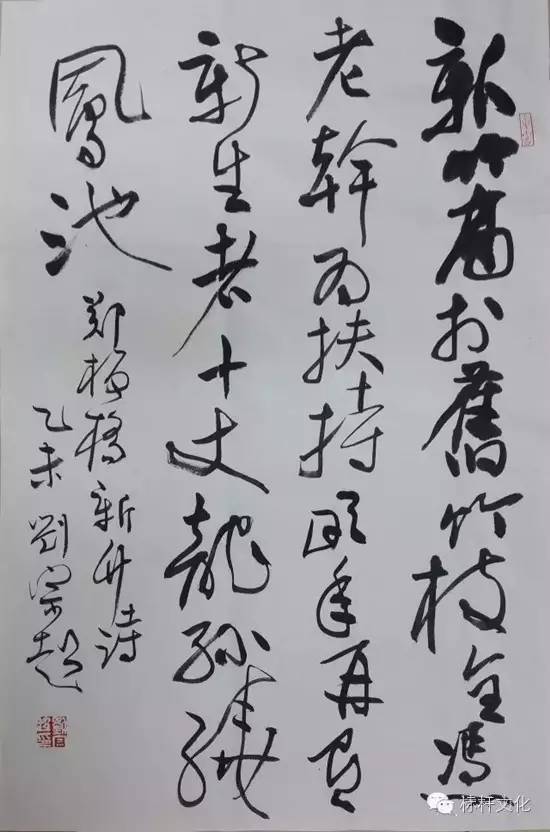 新竹高於舊竹枝全憑
老幹為扶持明年再有
新生者十丈龍孫繞
鳳池
鄭板橋新竹詩
乙未劉宗超
标杆文化